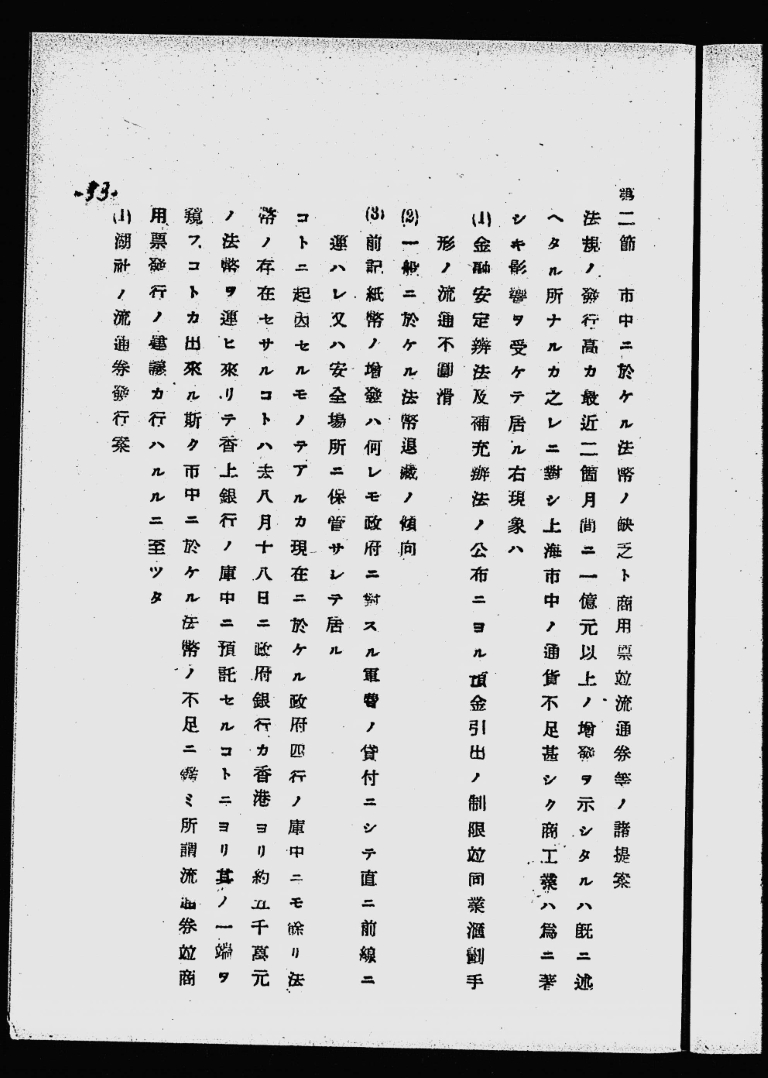 第二節　市中ニ於ケル法幣ノ缺乏ト商用票竝流通券等ノ諸提案
法規ノ發行高カ最近二箇月間ニ一億元以上ノ增發ヲ示シタルハ既ニ述
ヘタル所ナルカ之レニ對シ上海市中ノ通貨不足甚シク商工業ハ爲ニ著
シキ影響ヲ受ケテ居ル右現象ハ
(1)金融安定辨法及補充辨法ノ公布ニヨル預金引出ノ制限竝同業滙劃手
形ノ流通不圓滑
(2)一般ニ於ケル法幣退藏ノ傾向
(3)前記紙幣ノ增發ハ何レモ政府ニ對スル軍費ノ貸付ニシテ直ニ前線ニ
運ハレ又ハ安全場所ニ保管サレテ居ル
コトニ起因セルモノテアルカ現在ニ於ケル政府四行ノ庫中ニモ餘リ法
幣ノ存在セサルコトハ去八月十八日ニ政府銀行カ香港ヨリ約五千萬元
ノ法幣ヲ運ヒ來リテ香上銀行ノ庫中ニ預託セルコトニヨリ其ノ一端ヲ
窺フコトカ出來ル斯ク市中ニ於ケル法幣ノ不足ニ鑑ミ所謂流通券竝商
用票發行ノ建議カ行ハルルニ至ツタ
(1)湖社ノ流通券發行案
-93-